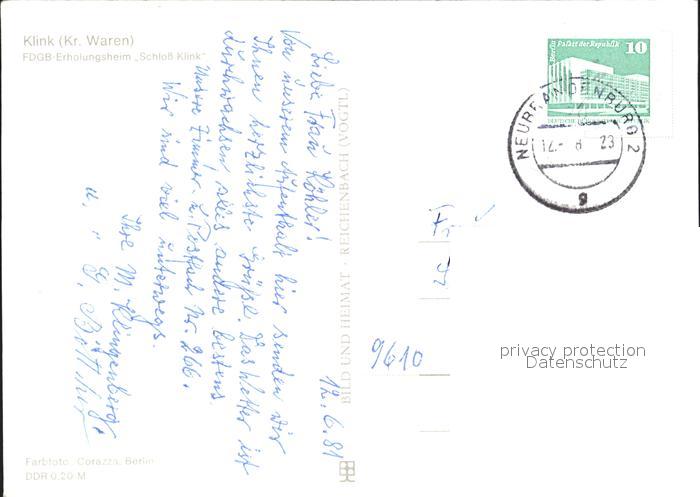 Klink (Kr. Waren)
FDGB-Erholungsheim „Schloß Klink“
12. 6. 81
Liebe Frau Köhler!
Von unserem Aufenthalt hier senden wir
Ihnen herzlichste Grüße. Das Wetter ist
durchwachsen, alles andere bestens.
Unsere Zimmer- u. Postkart Nr. 266.
Wir sind viel unterwegs.
Ihre M. Klingenberg
u. G.
BILD UND HEIMAT · REICHENBACH (VOGTL)
Farbfoto: Corazza, Berlin
DDR 0,20 M
Berlin Palast der Republik 10
NEUBRANDENBURG 2
12.- 6 23
g
9610
privacy protection
Datenschutz